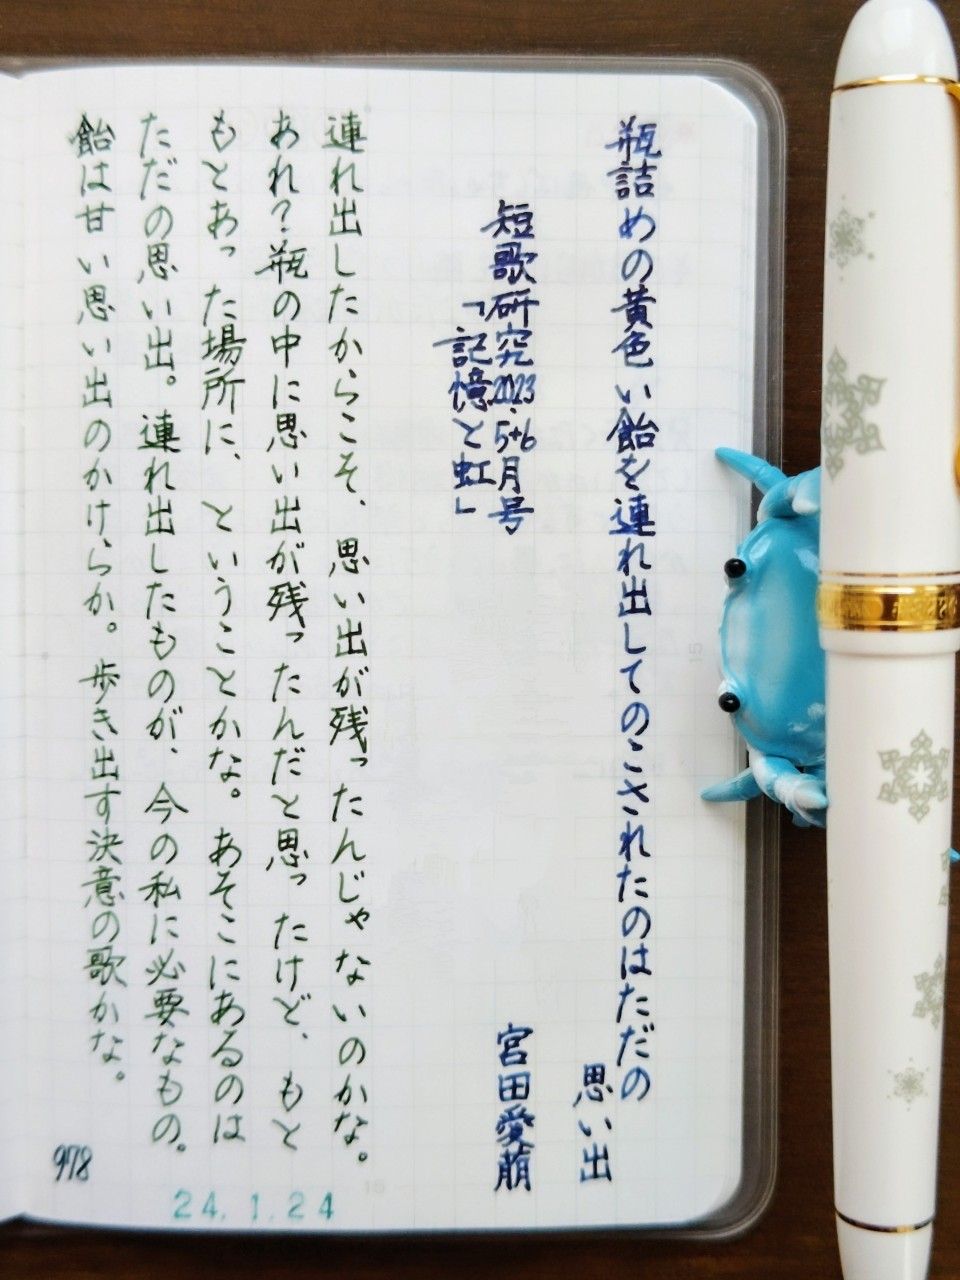 瓶詰めの黄色い飴を連れ出してのこされたのはただの
思い出
短歌研究2023.5+6月号
「記憶と虹」
宮田愛萌
連れ出したからこそ、思い出が残ったんじゃないのかな。
あれ?瓶の中に思い出が残ったんだと思ったけど、もと
もとあった場所に、ということかな。あそこにあるのは
ただの思い出。連れ出したものが、今の私に必要なもの。
飴は甘い思い出のかけらか。歩き出す決意の歌かな。
978
24.1.24